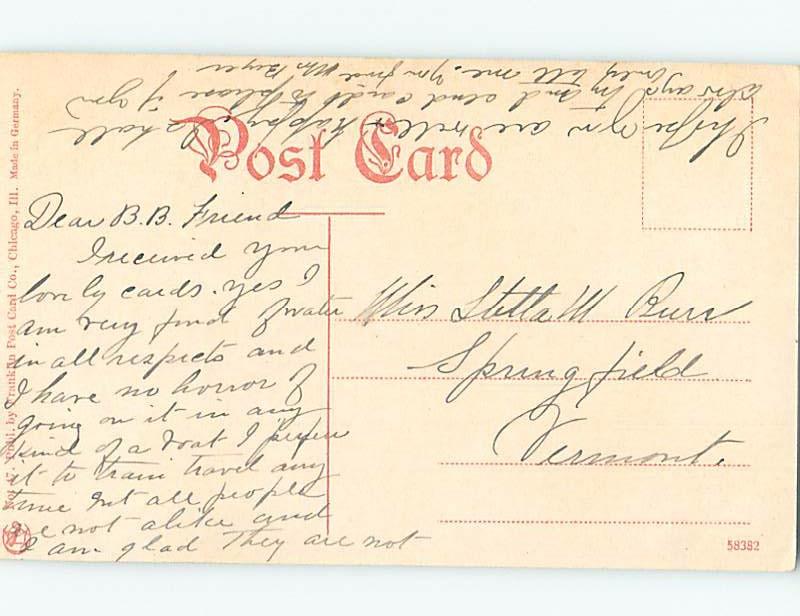 Post Card
Dear B.B. Friend
I received your
lovely cards. yes I
am very fond of water
in all respects and
I have no horror of
going on it in any
kind of a boat I prefer
it to train travel any
time but all people
are not alike and
I am glad they are not
I hope you are well & happy I shall
always try and send cards to please if you
only tell me. Your friend
Miss Stella M Burr
Springfield
Vermont.
No. 17. Publ. by Franklin Post Card Co., Chicago, Ill. Made in Germany.
58382